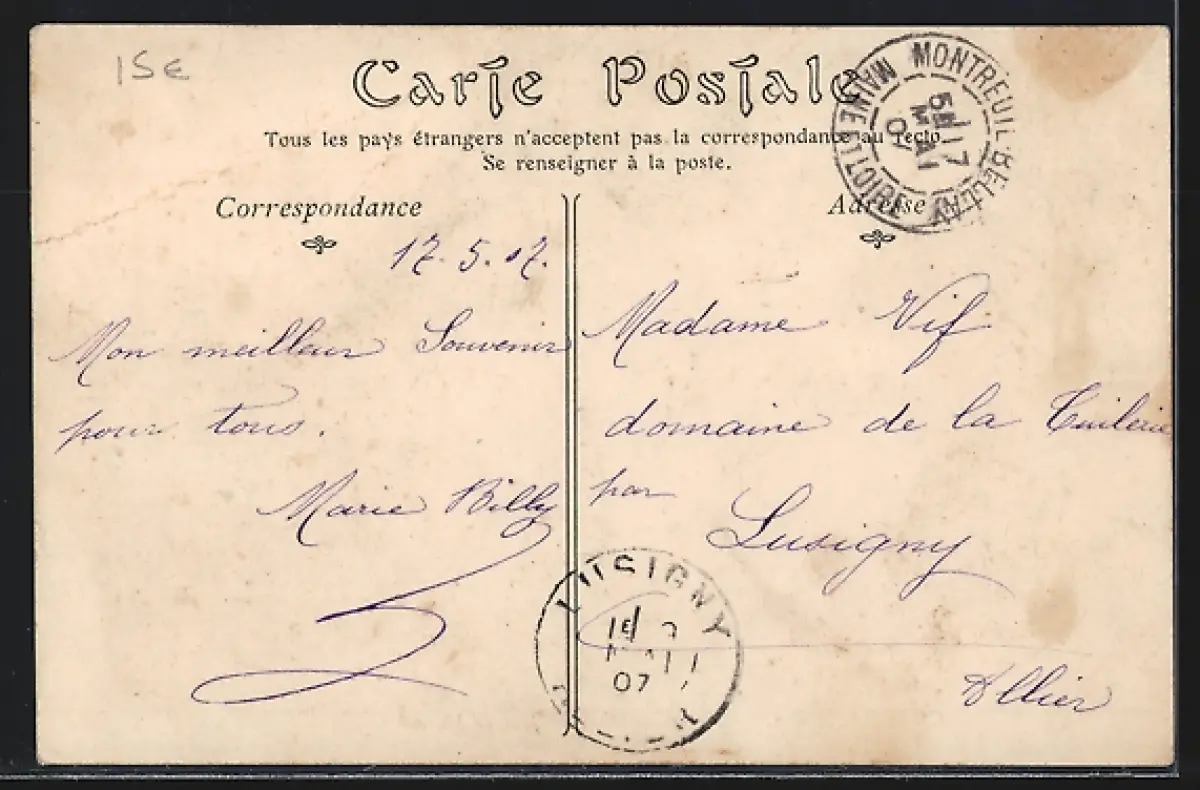 15€
Carte Postale
Tous les pays étrangers n'acceptent pas la correspondance au recto.
Se renseigner à la poste.
Correspondance
Adresse
MONTREUIL-BELLAY
MAINE ET LOIRE
5E 17
MAI
07
17.5.07.
Mon meilleur Souvenir
pour tous.
Marie Billy
Madame Vif
domaine de la Tuilerie
par
Lusigny
Allier
LUSIGNY
1E
07